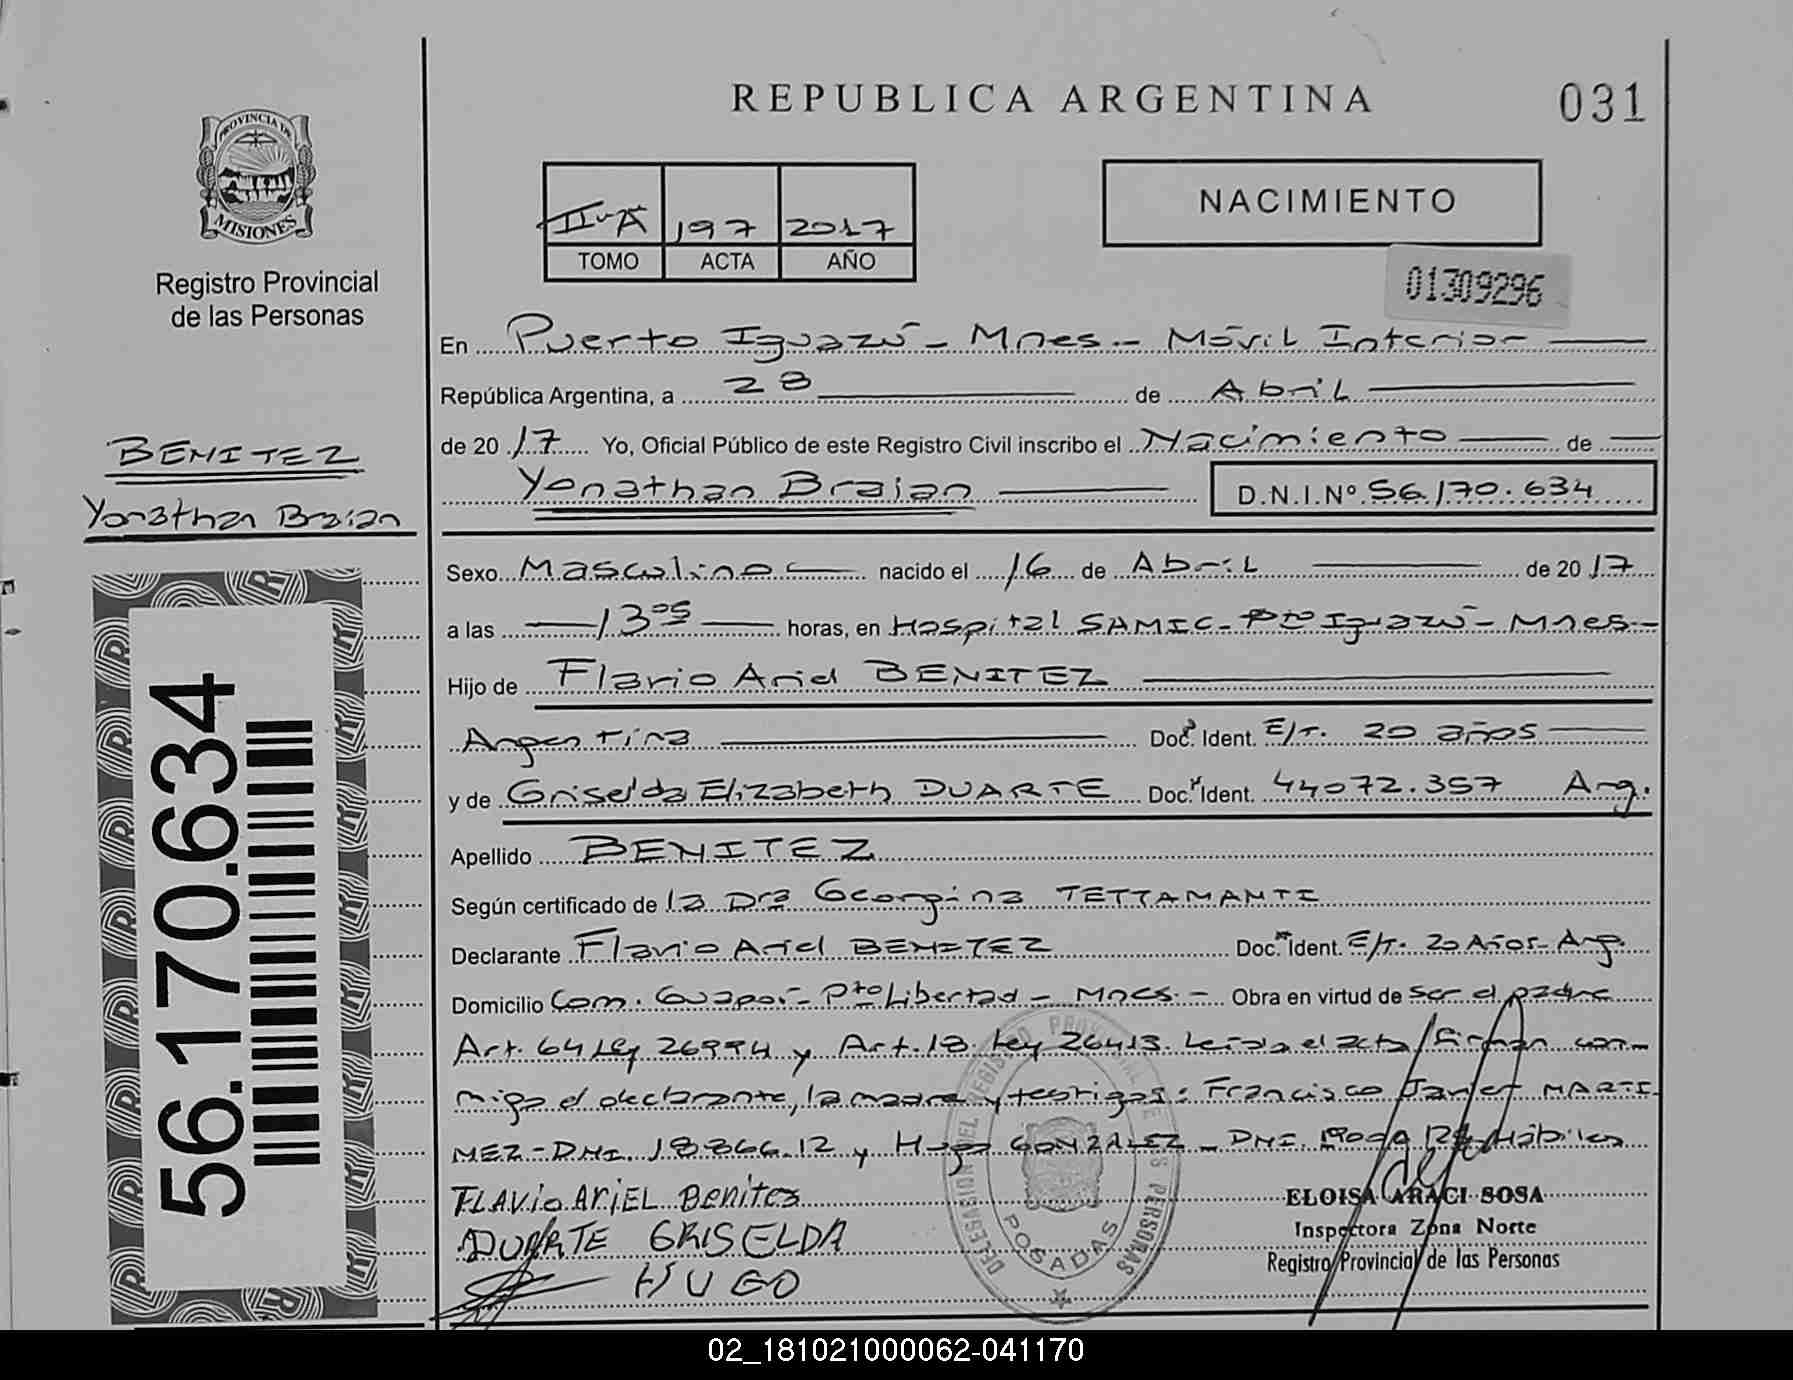 REPUBLICA ARGENTINA
031
PROVINCIA DE MISIONES
Registro Provincial
de las Personas
197 2017
TOMO ACTA AÑO
NACIMIENTO
01309296
En Puerto Iguazú - Mnes. - Móvil Interior
República Argentina, a 28 de Abril
de 2017 Yo, Oficial Público de este Registro Civil inscribo el Nacimiento de
Yonathan Braian D.N.I.Nº 56.170.634
BENITEZ
Yonathan Braian
56.170.634
Sexo Masculino nacido el 16 de Abril de 2017
a las 13 05 horas, en Hospital SAMIC - Pto Iguazú - Mnes -
Hijo de Flavio Ariel BENITEZ
Argentina Doc. Ident. E/T. 20 años
y de Griselda Elizabeth DUARTE Doc. Ident. 44072.357 Arg.
Apellido BENITEZ
Según certificado de la Dra Georgina TETTAMANTI
Declarante Flavio Ariel BENITEZ Doc. Ident. E/T. 20 Años - Arg.
Domicilio Com. Guaporé - Pto Libertad - Mnes - Obra en virtud de ser el padre
Art. 64 Ley 26994 y Art. 18 Ley 26413. Leída el acta firman con-
migo el declarante, la madre y testigos: Francisco Javier MARTI
NEZ - DNI. y Hugo GONZALEZ - DNI. Hábiles
FLAVIO ARIEL Benites
DUARTE GRISELDA
HUGO
DELEGACION DEL REGISTRO PROVINCIAL DE LAS PERSONAS
POSADAS
ELOISA ARACI SOSA
Inspectora Zona Norte
Registro Provincial de las Personas
02_181021000062-041170